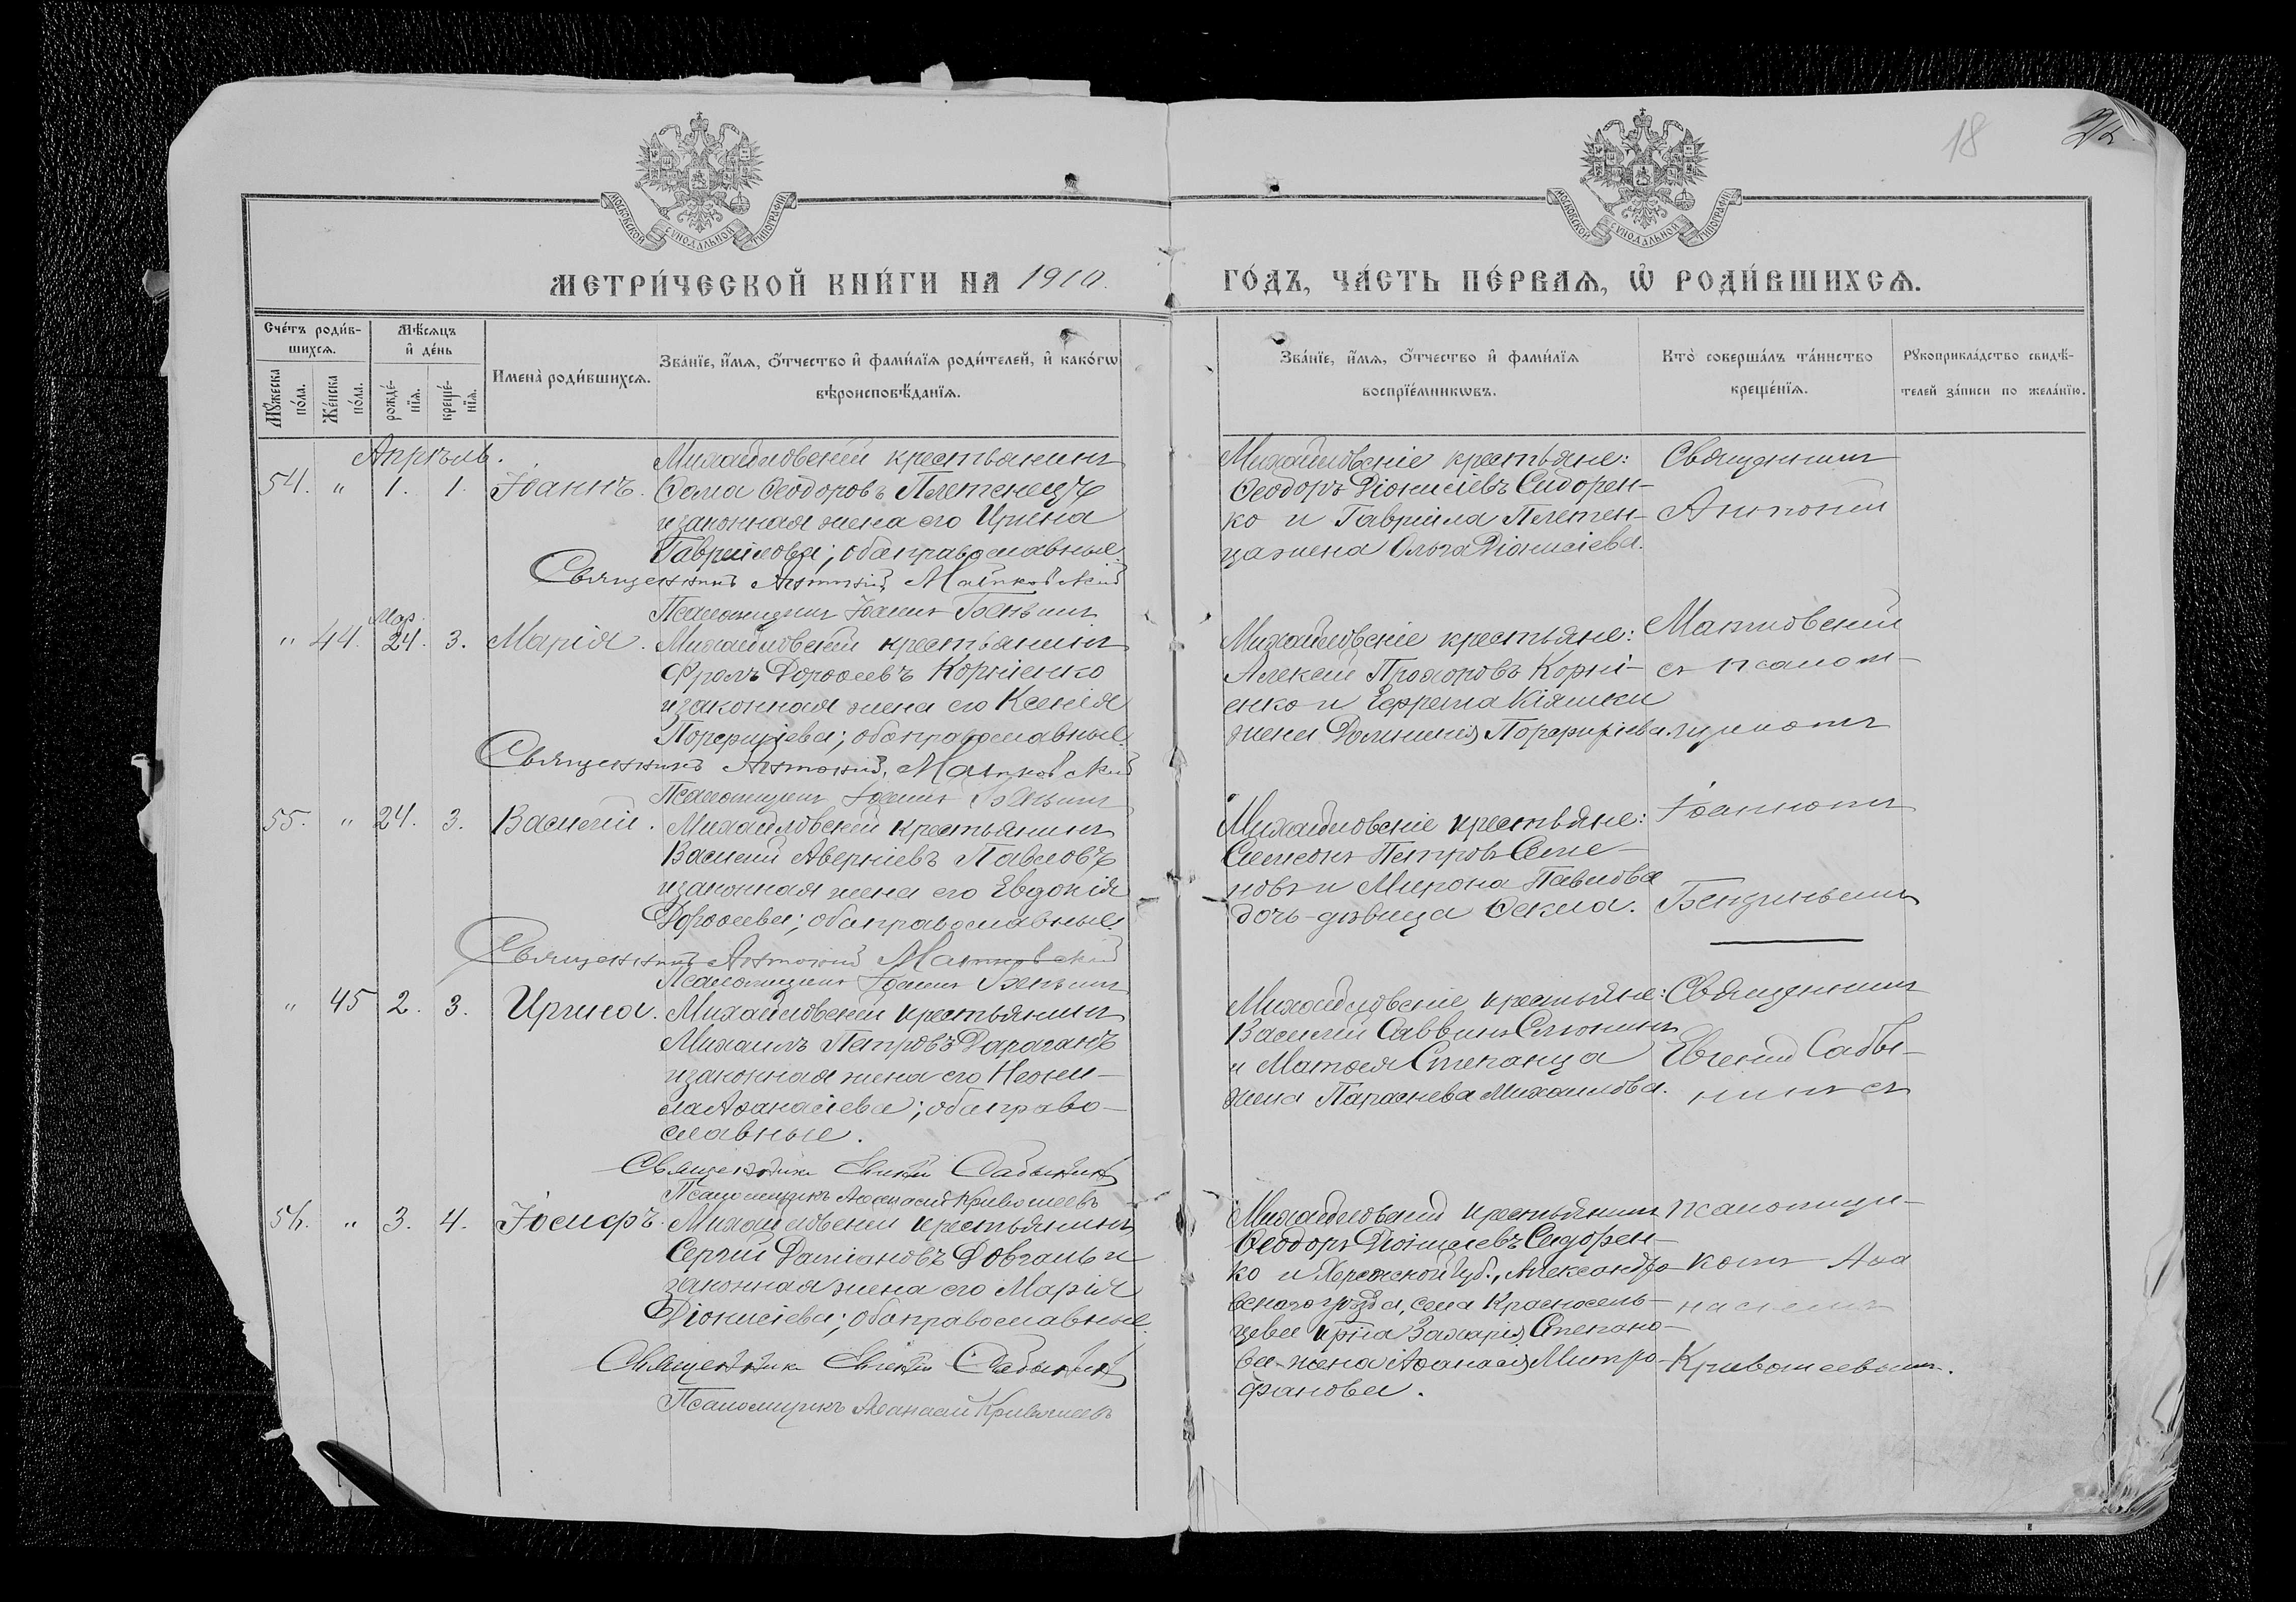 18
МОСКОВСКОЙ СѴНОДАЛЬНОЙ ТИПОГРАФІИ
МОСКОВСКОЙ СѴНОДАЛЬНОЙ ТИПОГРАФІИ
МЕТРИ́ЧЕСКОЙ КНИ́ГИ НА 1910
ГО́ДЪ, ЧА́СТЬ ПЕ́РВАѦ, Ѡ҆ РОДИ́ВШИХСѦ.
Сче́тъ роди́вшихсѧ.
Мꙋ́жеска по́ла.
Же́нска по́ла.
Мѣ́сѧцъ и҆ де́нь
рожде́нїѧ.
креще́нїѧ.
Имена̀ роди́вшихсѧ.
Зва́нїе, и҆́мѧ, ѻ҆́тчество и҆ фами́лїѧ роди́телей, и҆ како́гѡ
вѣроисповѣ́данїѧ.
Зва́нїе, и҆́мѧ, ѻ҆́тчество и҆ фами́лїѧ
воспрїе́мникѡвъ.
Кто̀ соверша́лъ та́инство
креще́нїѧ.
Рꙋкоприкла́дство свидѣ́-
телей за́писи по жела́нїю.
Апрѣль.
54. " 1. 1. Іоаннъ.
Михайловскій крестьянинъ
Ѳома Ѳеодоровъ Плетенецъ
и законная жена его Ирина
Гавріилова; оба православные.
Священникъ Антоній Матковскій
Псаломщикъ Іоаннъ
Михайловскіе крестьяне:
Ѳеодоръ Діонисіевъ Сидорен-
ко и Гавріила Плетен-
ца жена Ольга Діонисіева.
Священникъ
Антоній
" 44. Мар. 24. 3. Марія.
Михайловскій крестьянинъ
Фролъ Дороѳеевъ Корніенко
и законная жена его Ксенія
Порфиріева; оба православные.
Священникъ Антоній Матковскій
Псаломщикъ Іоаннъ
Михайловскіе крестьяне:
Алексій Прохоровъ Корні-
енко и Ефрема Кіяшки
жена Домникія Порфиріева.
Матковскій
съ псалом-
щикомъ
55. " 24. 3. Василій.
Михайловскій крестьянинъ
Василій Аверкіевъ Павловъ
и законная жена его Евдокія
Дороѳеева; оба православные.
Священникъ Антоній Матковскій
Псаломщикъ Іоаннъ
Михайловскіе крестьяне:
Симеонъ Петровъ Семе-
новъ и Мирона Павлова
дочь-дѣвица Ѳекла.
Іоанномъ
" 45 2. 3. Ирина.
Михайловскій крестьянинъ
Михаилъ Петровъ Дараганъ
и законная жена его Неони-
ла Аѳанасіева; оба право-
славные.
Священникъ Евгеній Сабынинъ
Псаломщикъ Аѳанасій Кривошеевъ
Михайловскіе крестьяне:
Василій Саввинъ
и Матѳея Степанца
жена Параскева Михаилова.
Священникъ
Евгеній Сабы-
нинъ съ
56. " 3. 4. Іосифъ.
Михайловскій крестьянинъ
Сергій Даміановъ Довгаль и
законная жена его Марія
Діонисіева; оба православные.
Священникъ Евгеній Сабынинъ
Псаломщикъ Аѳанасій Кривошеевъ
Михайловскій крестьянинъ
Ѳеодоръ Діонисіевъ Сидорен-
ко и Херсонской губ., Александрі-
вскаго уѣзда, села Красносель-
цева кр-на Захарія Степано-
ва жена Аѳанасія Митро-
фанова.
псаломщи-
комъ Аѳа
насіемъ
Кривошеевымъ.